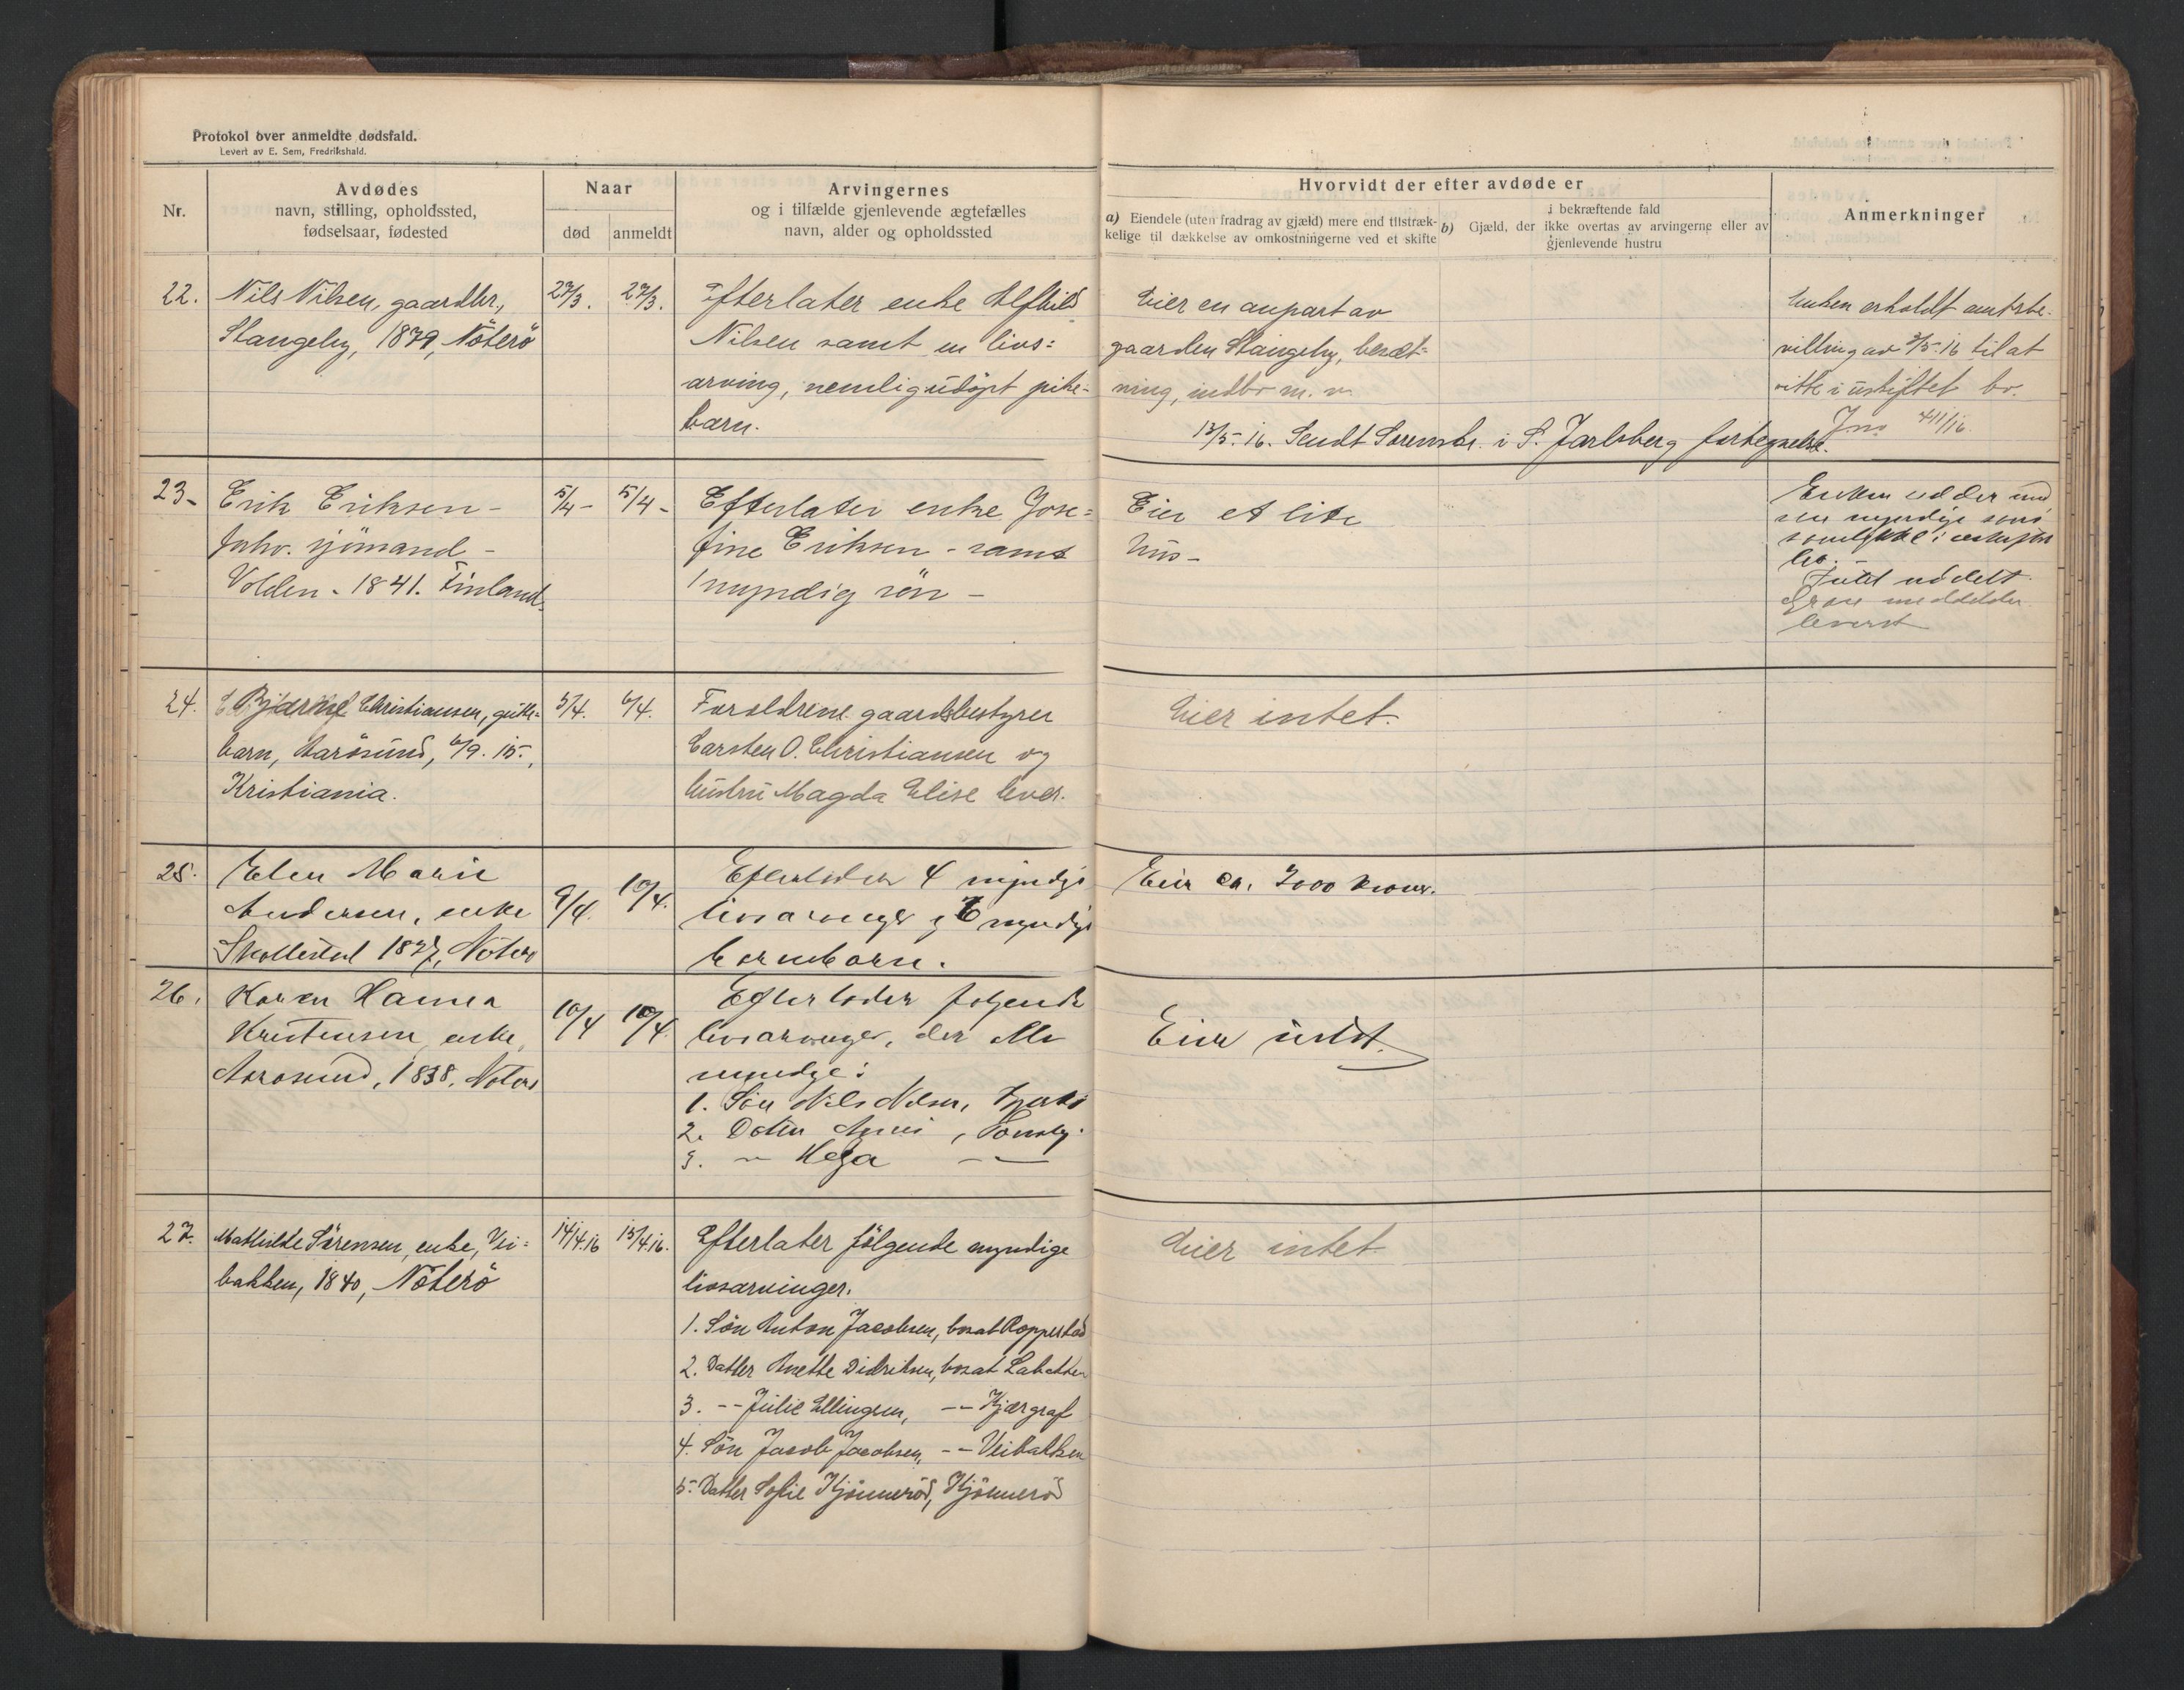 Protokol over anmeldte dødsfald.
Levert av E. Sem, Fredrikshald.
Nr.
Avdødes
navn, stilling, opholdssted,
fødselsaar, fødested
Naar
død
anmeldt
Arvingernes
og i tilfælde gjenlevende ægtefælles
navn, alder og opholdssted
Hvorvidt der efter avdøde er
a) Eiendele (uten fradrag av gjæld) mere end tilstræk-
kelige til dækkelse av omkostningerne ved et skifte
i bekræftende fald
b) Gjæld, der ikke overtas av arvingerne eller av
gjenlevende hustru
Anmerkninger
22.
Nils Nilsen, gaardbr.,
Stangeby, 1879, Nöterö
27/3.
27/3.
Efterlater enke Alfhild
Nilsen samt en livs=
arving, nemlig udöpt pike-
barn.
Eier en anpart av
gaarden Stangeby, besæt=
ning, indbo m. v.
13/5-16. Sendt Sorenskr. i S. Jarlsberg fortegnelse.
Enken erholdt amtsbe-
villing av 3/5-16 til at
sitte i uskiftet bo.
23-
Erik Eriksen-
sjömand -
Volden - 1841. Finland.
5/4-
5/4-
Efterlater enke Jose=
fine Eriksen - samt
1 myndig sön -
Eier et lite
hus-
24.
Bjarne Christiansen, gutte=
barn, Aarösund, 6/9. 15.,
Kristiania.
5/4.
6/4.
Forældrene gaardsbestyrer
Carsten O. Christiansen og
hustru Magda Elise lever.
Eier intet.
25.
Elen Marie
Andersen, enke
Skallestad Nöterö
9/4.
10/4.
Efterlader 4 myndige
livsarvinger og myndige
barnebarn.
Eier ca. kroner.
26.
Karen Hanna
Kristensen, enke,
Aarosund, 1838. Noterö
10/4
10/4.
Efterlader folgende
livsarvinger, der alle
myndige:
1. Sön Nils Nilsen,
2. Datter
3. - Helga - -
Eier intet.
27.
Mathilde Sörensen, enke, Vei=
bakken, 1840, Nöterö
14/4.16
15/4.16.
Efterlater fölgende myndige
livsarvinger.
1. Sön Anton Jacobsen, bosat Roppestad
2. Datter Anette Didriksen, bosat
3. -- Julie Ellingsen, -- Kjærgraf
4. Sön Jacob Jacobsen, -- Veibakken
5. Datter Sofie Kjönneröd, Kjönneröd
Eier intet